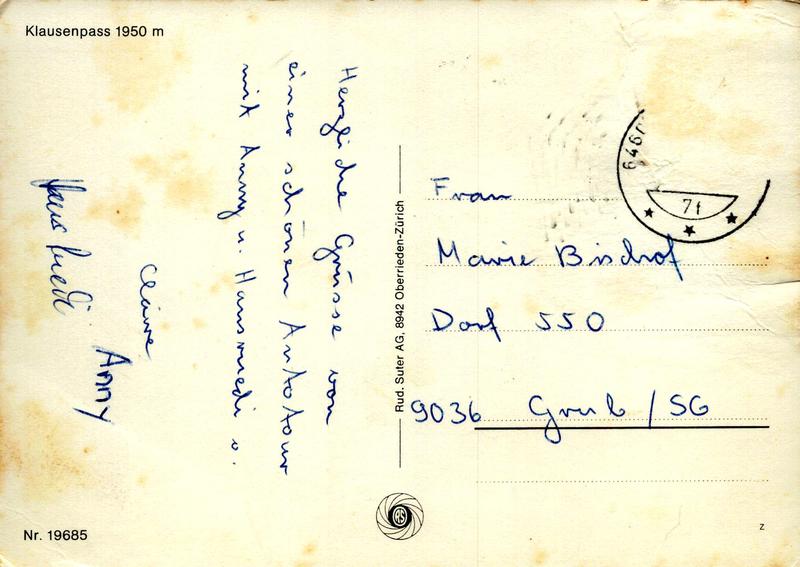 Klausenpass 1950 m
Herzliche Grüsse von
einer schönen Autotour
mit Anny u. Hansruedi v.
Claire
Anny
Hansruedi
Rud. Suter AG, 8942 Oberrieden-Zürich
RS
6467
7f
Frau
Marie Bischof
Dorf 550
9036 Grub / SG
Nr. 19685
z